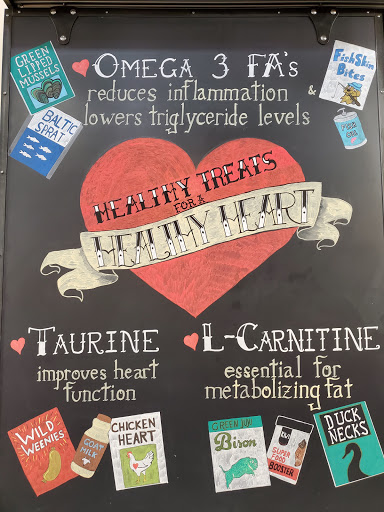 GREEN
LIPPED
MUSSELS
OMEGA 3 FA's
reduces inflammation &
lowers triglyceride levels
FishSkin
Bites
BALTIC
SPRAT
HEALTHY TREATS
FOR A
HEALTHY HEART
TAURINE
improves heart
function
L-CARNITINE
essential for
metabolizing fat
WILD
WEENIES
GOAT
MILK
CHICKEN
HEART
GREEN JUJU
Bison
SUPER
FOOD
BOOSTER
DUCK
NECKS